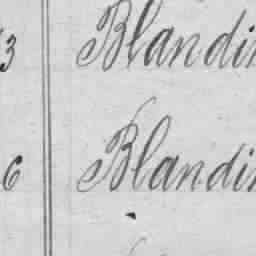 3 Blandin
6 Blandin